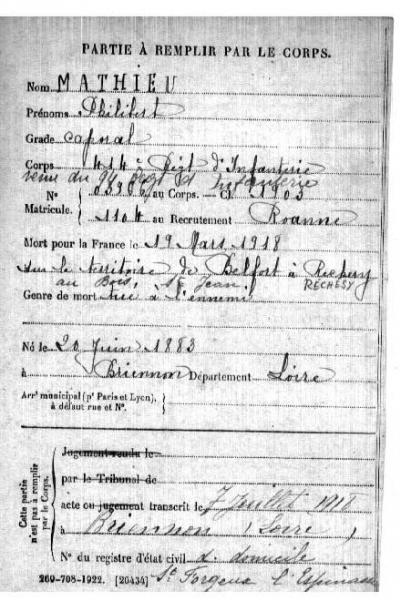 PARTIE À REMPLIR PAR LE CORPS.
Nom MATHIEU
Prénoms Philibert
Grade caporal
Corps 414e Régt d'Infanterie
venu du
Nº au Corps. — Cl. 1903
Matricule. 1104 au Recrutement Roanne
Mort pour la France le 19 Mars 1918
sur le territoire de Belfort à Rechesy
au Bois, St Jean RECHESY
Genre de mort tué à l'ennemi
Né le 20 Juin 1883
à Briennon Département Loire
Arrt municipal (pr Paris et Lyon),
à défaut rue et Nº.
Cette partie
n'est pas à remplir
par le Corps.
Jugement rendu le
par le Tribunal de
acte ou jugement transcrit le 7 Juillet 1918
à Briennon (Loire)
Nº du registre d'état civil d. domicile
269-708-1922. [26434] St Forgeux l'Espinasse